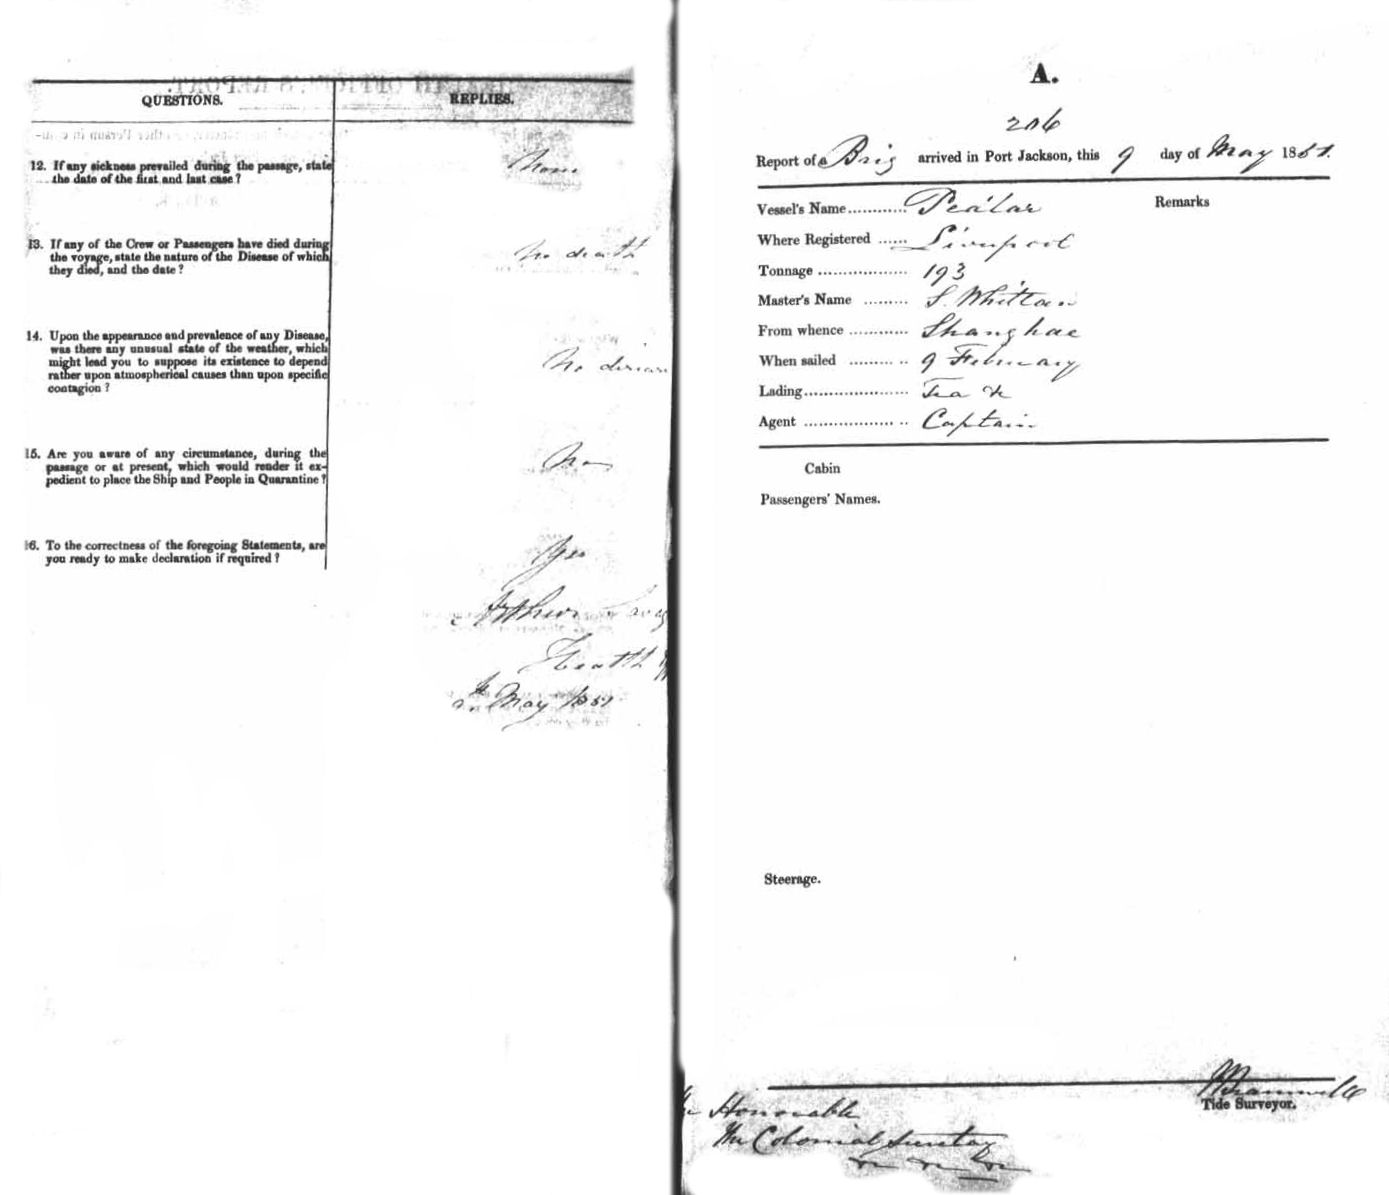 QUESTIONS.
REPLIES.
12. If any sickness prevailed during the passage, state
the date of the first and last case ?
None
13. If any of the Crew or Passengers have died during
the voyage, state the nature of the Disease of which
they died, and the date ?
No death
14. Upon the appearance and prevalence of any Disease,
was there any unusual state of the weather, which
might lead you to suppose its existence to depend
rather upon atmospherical causes than upon specific
contagion ?
No
15. Are you aware of any circumstance, during the
passage or at present, which would render it ex-
pedient to place the Ship and People in Quarantine ?
No
16. To the correctness of the foregoing Statements, are
you ready to make declaration if required ?
Yes
Arthur
Health
May 1851
A.
206
Report of a Brig arrived in Port Jackson, this 9 day of May 1851.
Vessel's Name
Remarks
Where Registered Liverpool
Tonnage 193
Master's Name S. Whittan
From whence Shanghae
When sailed 9 February
Lading Tea &c
Agent Captain
Cabin
Passengers' Names.
Steerage.
Tide Surveyor.
The Honorable
The Colonial Secretary